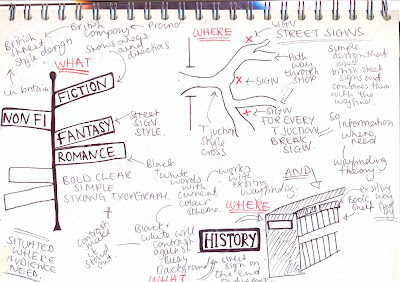 British
street design
style
British
company
Proud
shows areas
and
directions
in britain
WHAT
FICTION
NON FI
FANTASY
ROMANCE
Street
SIGN
STYLE.
BOLD CLEAR
SIMPLE
STRONG TYPOGRAPHY.
Black
+ white
words
with
current
colour
scheme.
works
with
existing
wayfinding.
contrast
make
it
stand
out
Black +
White will
contrast
against
busy
background
SITUATED
WHERE
AUDIENCE
NEED.
WHAT
WHERE
SIGN
STREET SIGNS.
Path
way
through
shop
SIGN
SIGN
FOR EVERY
T JUCTION
BREAK
SIGN.
T juction
style
cross
simple
design that
uses
british street
signs and
combines
them with
the wayfind
so
information
where
need
wayfinding
theory
AND
WHERE
existing
book
shelf
HISTORY
street
sign on
the end